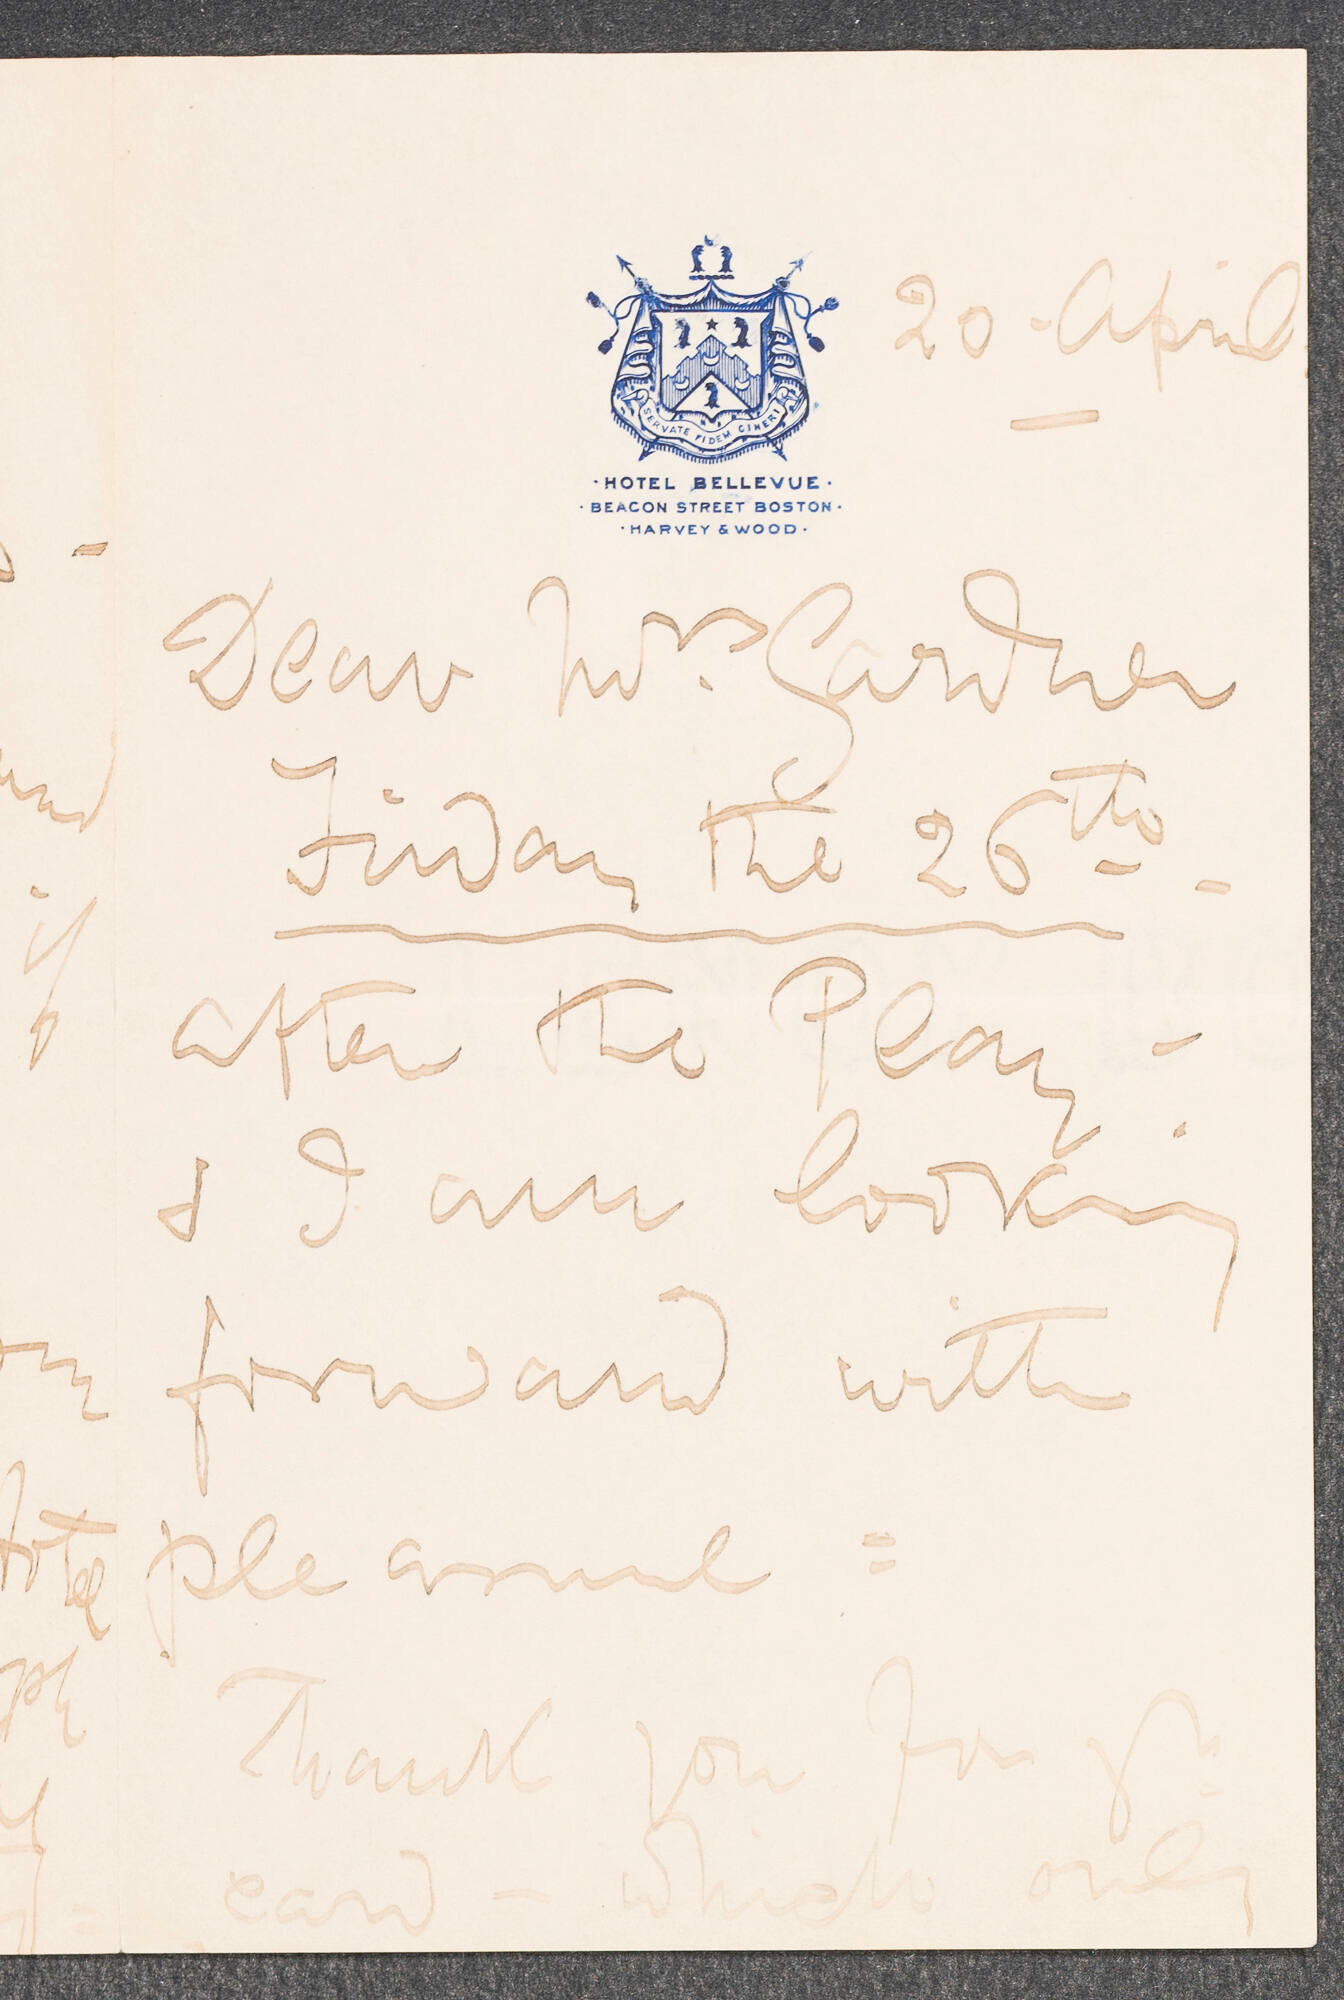 20 - April
SERVATE FIDEM CINERI
· HOTEL BELLEVUE ·
· BEACON STREET BOSTON ·
· HARVEY & WOOD ·
Dear Mrs. Gardner
Friday the 26th -
after the Play -
& I am looking
forward with
pleasure =
Thank you for yr
card - which only
if